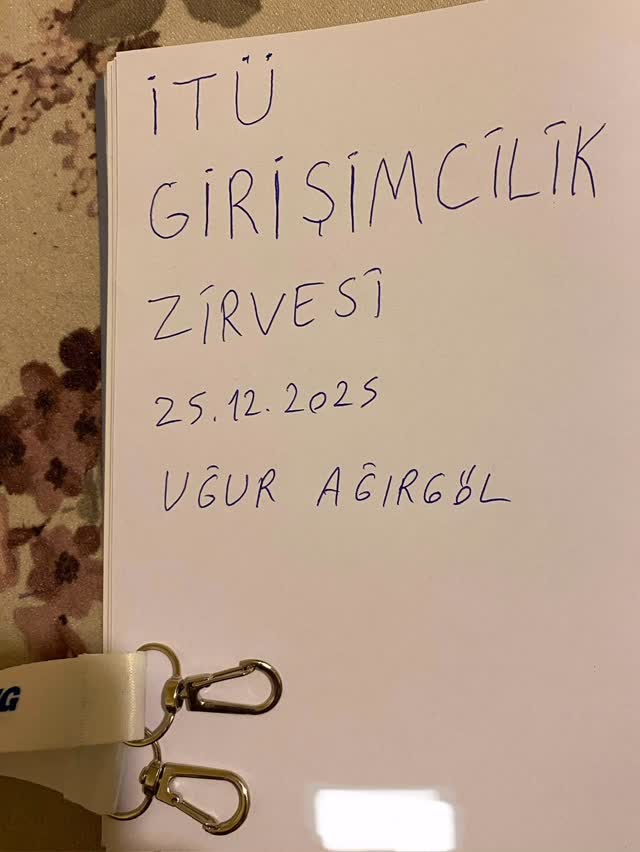 İTÜ
GİRİŞİMCİLİK
ZİRVESİ
25.12.2025
UĞUR AĞIRGÖL